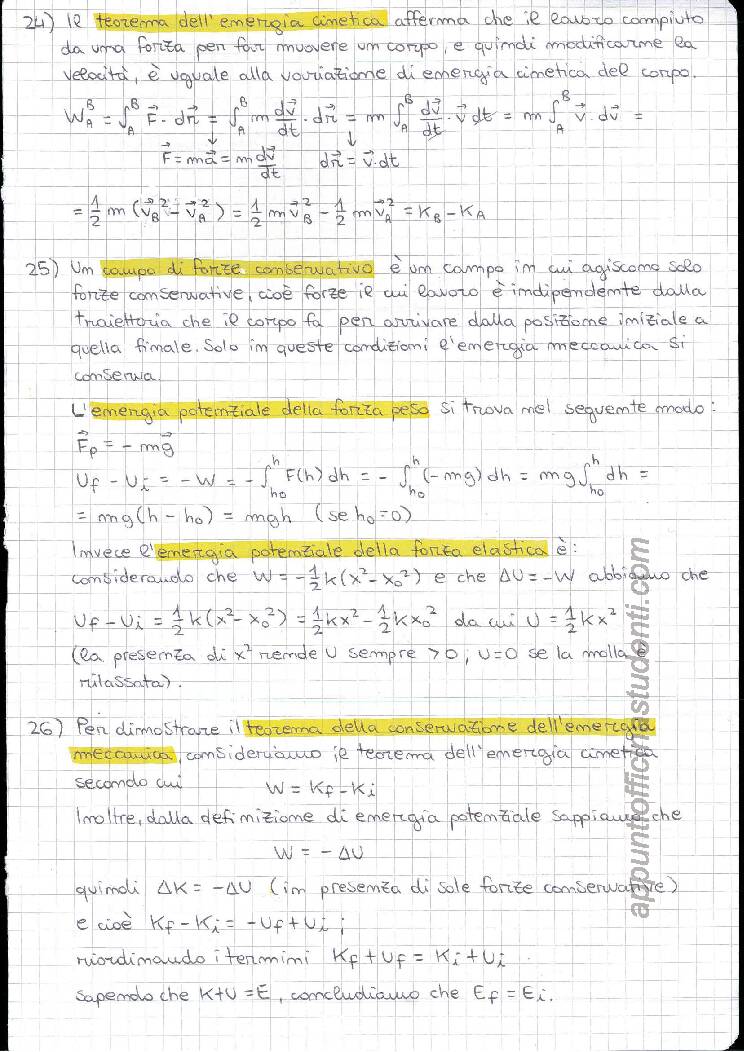 24) Il teorema dell'energia cinetica afferma che il lavoro compiuto
da una forza per far muovere un corpo, e quindi modificarne la
velocità, è uguale alla variazione di energia cinetica del corpo.
W_A^B = ∫_A^B F⃗ · dr⃗ = ∫_A^B m dv⃗/dt · dr⃗ = m ∫_A^B dv⃗/dt · v⃗ dt = m ∫_A^B v⃗ · dv⃗ =
↓ ↓
F⃗ = ma⃗ = m dv⃗/dt dr⃗ = v⃗ · dt
= 1/2 m (v⃗_B² - v⃗_A²) = 1/2 m v⃗_B² - 1/2 m v⃗_A² = K_B - K_A
25) Un campo di forze conservativo è un campo in cui agiscono solo
forze conservative, cioè forze il cui lavoro è indipendente dalla
traiettoria che il corpo fa per arrivare dalla posizione iniziale a
quella finale. Solo in queste condizioni l'energia meccanica si
conserva.
L'energia potenziale della forza peso si trova nel seguente modo:
F⃗_p = - mg⃗
U_f - U_i = - W = - ∫_{h0}^h F(h) dh = - ∫_{h0}^h (-mg) dh = mg ∫_{h0}^h dh =
= mg (h - h0) = mgh (se h0 = 0)
Invece l'energia potenziale della forza elastica è:
considerando che W = - 1/2 k (x² - x0²) e che ΔU = - W abbiamo che
U_f - U_i = 1/2 k (x² - x0²) = 1/2 kx² - 1/2 kx0² da cui U = 1/2 kx²
(la presenza di x² rende U sempre > 0 ; U = 0 se la molla è
rilassata).
26) Per dimostrare il teorema della conservazione dell'energia
meccanica, consideriamo il teorema dell'energia cinetica
secondo cui W = K_f - K_i
Inoltre, dalla definizione di energia potenziale sappiamo che
W = - ΔU
quindi ΔK = - ΔU (in presenza di sole forze conservative)
e cioè K_f - K_i = - U_f + U_i ;
riordinando i termini K_f + U_f = K_i + U_i
sapendo che K + U = E, concludiamo che E_f = E_i.
appuntiofficinastudenti.com